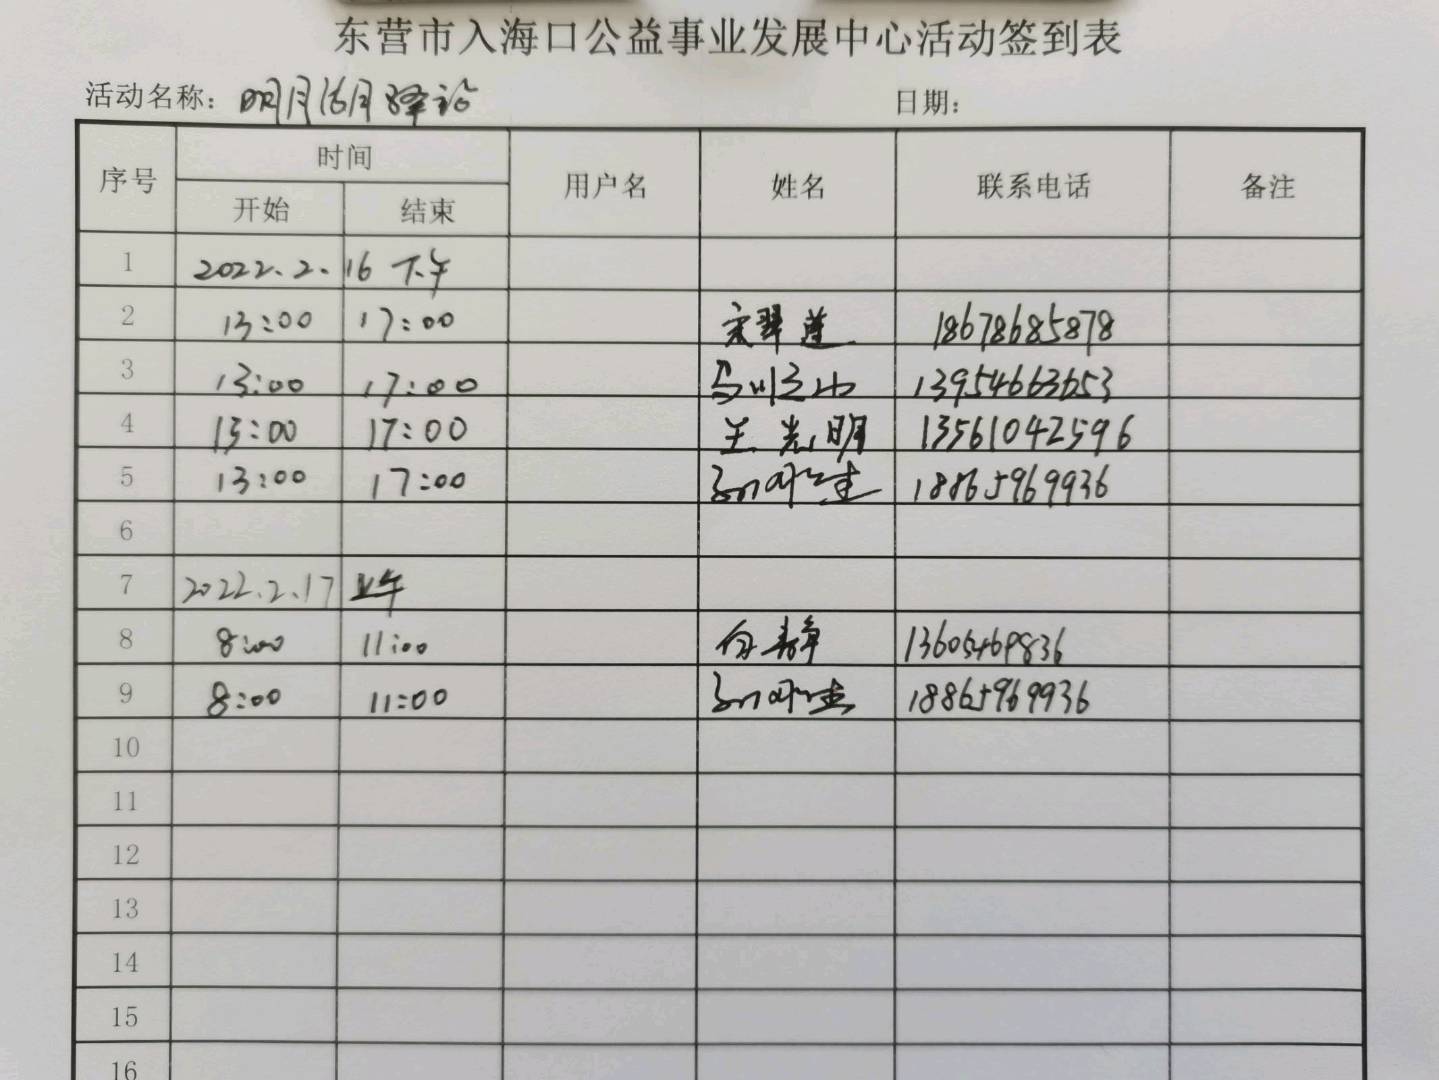 东营市入海口公益事业发展中心活动签到表
活动名称：明月
日期：
序号 时间 用户名 姓名 联系电话 备注
开始 结束
1 2022.2.16 下午
2 13:00 17:00 宋翠莲 18678685878
3 13:00 17:00 13954663653
4 13:00 17:00 王光明 13561042596
5 13:00 17:00 18865969936
6
7 2022.2.17 上午
8 8:00 11:00 静 13605469836
9 8:00 11:00 18865969936
10
11
12
13
14
15
16